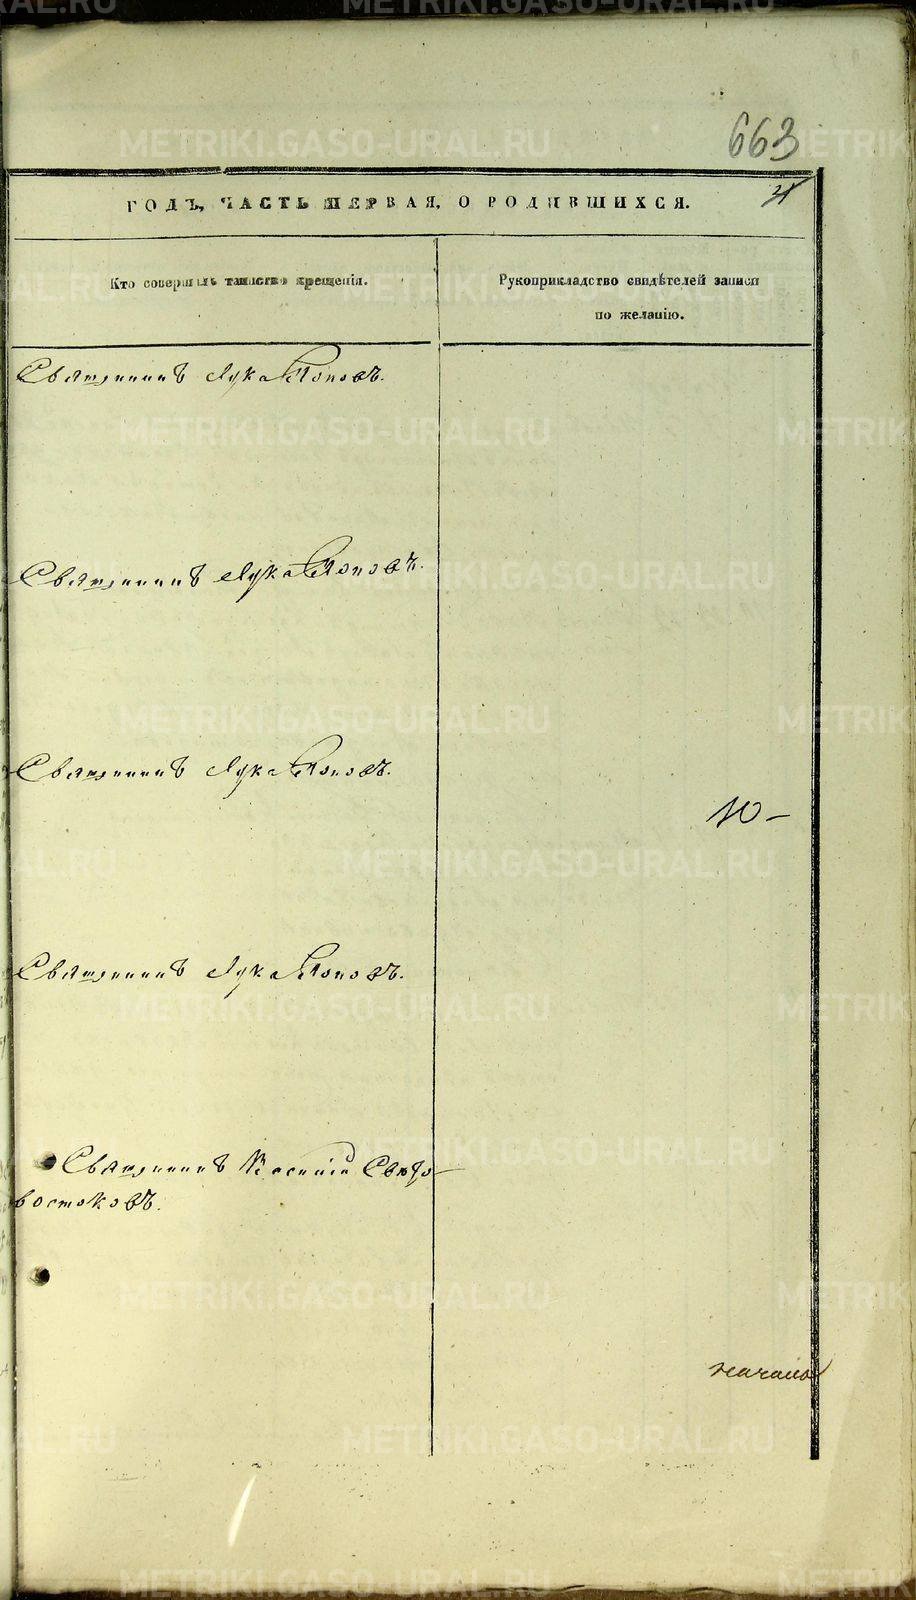 663
ГОДЪ, ЧАСТЬ ПЕРВАЯ, О РОДИВШИХСЯ.
Кто совершалъ таинство крещенія.
Рукоприкладство свидѣтелей записи
по желанію.
Священникъ Лука Поповъ.
Священникъ Лука Поповъ.
Священникъ Лука Поповъ.
Священникъ Лука Поповъ.
Священникъ Василій Свѣто-
востоковъ.
METRIKI.GASO-URAL.RU